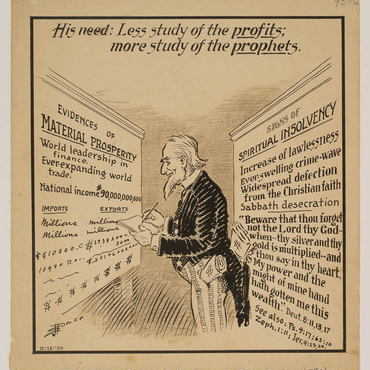 His need: Less study of the profits;
more study of the prophets.
EVIDENCES OF
MATERIAL PROSPERITY
World leadership in
finance.
Ever-expanding world
trade.
National income $90,000,000,000
IMPORTS EXPORTS
Millions millions
Millions millions
SIGNS OF
SPIRITUAL INSOLVENCY
Increase of lawlessness
Ever-swelling crime-wave
Widespread defection
from the Christian faith
Sabbath desecration
"Beware that thou forget
not the Lord thy God—
when—thy silver and thy
gold is multiplied—and
thou say in thy heart,
My power and the
might of mine hand
hath gotten me this
wealth". Deut. 8:11,13,17
See also: Ps. 9:17; 62:10
Zeph. 1:11; Jer. 9:23,24
Pace